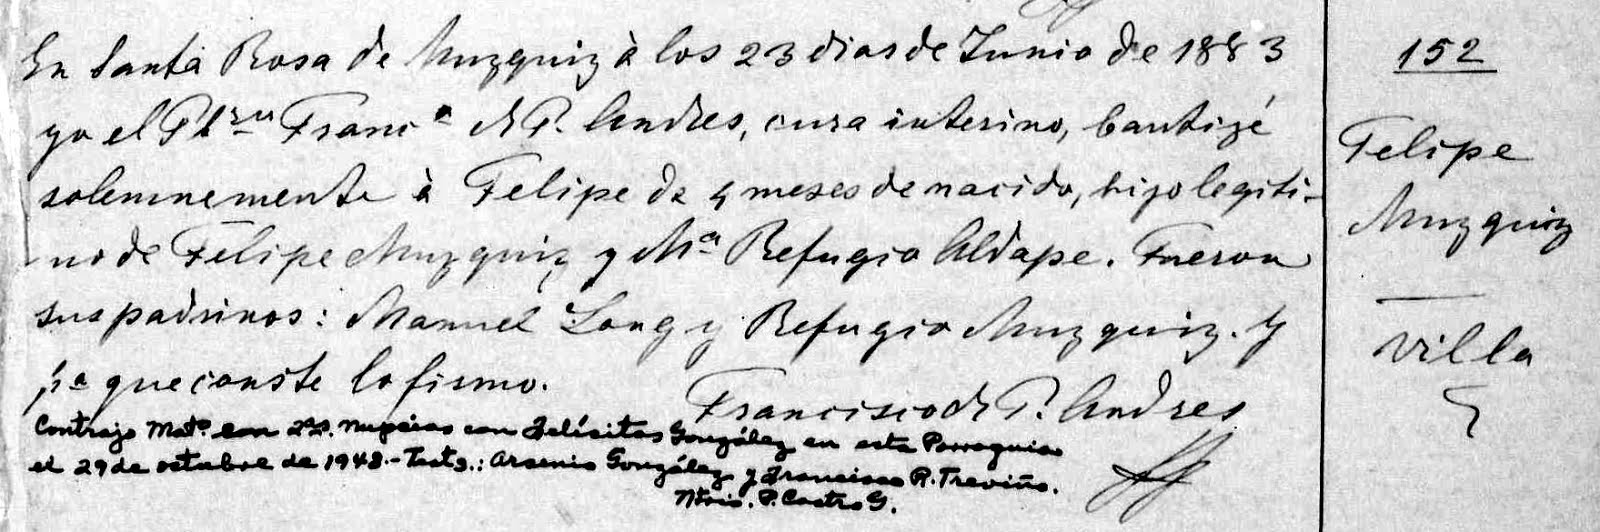 En Santa Rosa de Muzquiz à los 23 dias de Junio de 1883
yo el Pbro Franco de P. Andres, cura interino, bautizé
solemnemente à Felipe de 4 meses de nacido, hijo legiti-
mo de Felipe Muzquiz y Ma Refugio Aldape. Fueron
sus padrinos: Manuel Long y Refugio Muzquiz. Y
pa que conste lo firmo.
Francisco de P. Andres
Contrajo Mato. en 2as. nupcias con Felícitas González en esta Parroquia
el 29 de octubre de 1948.- Testg.: Arsenio González y Francisco R. Treviño.
P. Castro G.
152
Felipe
Muzquiz
Villa